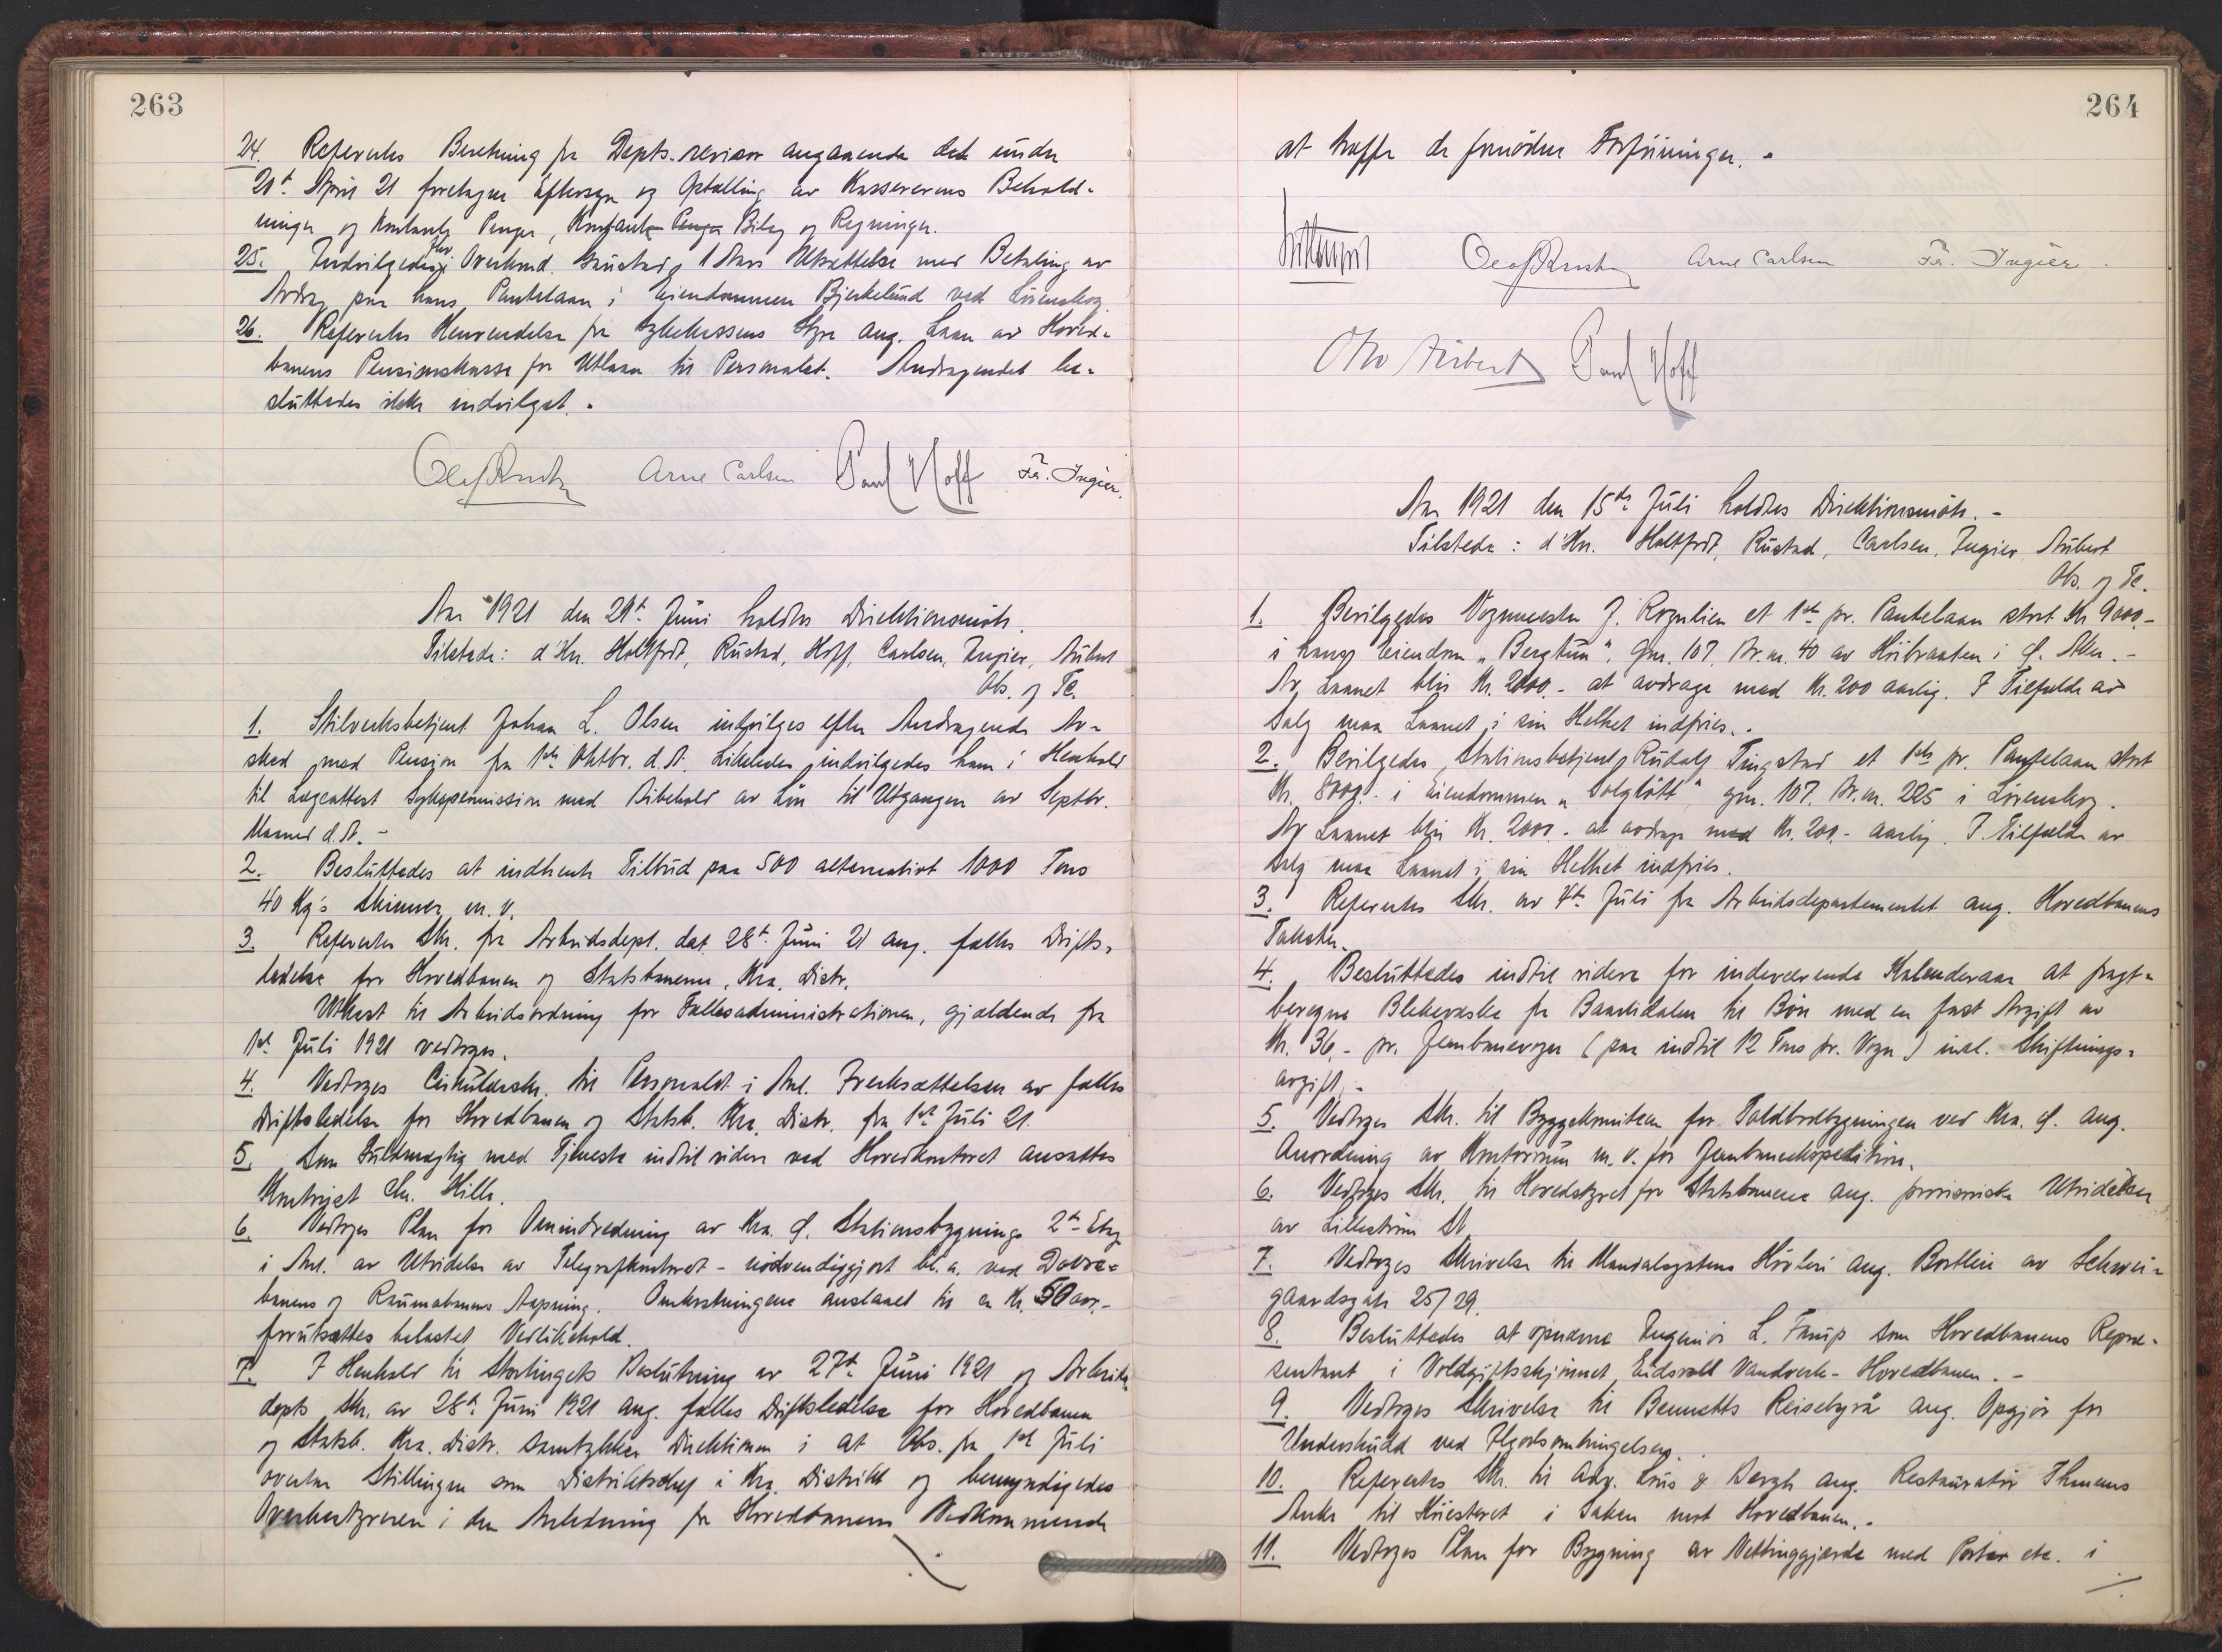 263
24. Refereertes Beretning fra Depts. revisor angaaende det under
21de April 21 foretagne Eftersyn og Optælling av Kassererens Behold-
ninger og Kontante Penge, Kontante Penge Bilag og Regninger.
25. Indvilgedes Hr Overkond. Grustad 1 Aars Utsættelse med Betaling av
Avdrag paa hans Pantelaan i Eiendommen Bjerkelund ved Lørenskog.
26. Refereertes Henvendelse fra Sykekassens Styre ang. Laan av Hoved-
banens Pensionskasse for Utlaan til Personalet. Andragendet be-
sluttedes ikke indvilget. -
Olaf Rustad Arne Carlsen Paul Hoff Fr. Ingier.
Aar 1921 den 29de Juni holdtes Direktionsmöte.
Tilstede: d'Hrr. Holtfodt, Rustad, Hoff, Carlsen, Ingier, Aubert
Obs. og Tc.
1. Stilverksbetjent Johan L. Olsen indvilges efter Andragende Av-
sked med Pension fra 1ste Oktbr. d.A. Likeledes indvilgedes ham i Henhold
til Lægeattest Sykepermission med Bibehold av Løn til Utgangen av Septbr.
Maaned d.A. -
2. Besluttedes at indhente Tilbud paa 500 alternativt 1000 Tons
40 Kg's Skinner m. v.
3. Refereertes Skr. fra Arbeidsdept. dat. 28de Juni 21 ang. fælles Drifts-
ledelse for Hovedbanen og Statsbanerne, Kra. Distr.
Utkast til Arbeidsordning for Fællesadministrationen, gjældende fra
1ste Juli 1921 vedtoges.
4. Vedtoges Cirkulærskr. til Personalet i Anl. Iverksættelsen av fælles
Driftsledelse for Hovedbanen og Statsb. Kra. Distr. fra 1ste Juli 21.
5. Som Fuldmægtig med Tjeneste indtil videre ved Hovedkontoret ansattes
Kontorist Chr. Hille.
6. Vedtoges Plan for Omindredning av Kra. Ø. Stationsbygnings 2den Etag.
i Anl. av Utvidelse av Telegrafkontoret - nødvendiggjort bl. a. ved Dovre-
banens og Raumabanens Aapning. Omkostningene anslaaet til ca Kr. 5000.-
forutsættes belastet Vedlikehold.
7. I Henhold til Stortingets Beslutning av 27de Juni 1921 og Arbeids-
depts Skr. av 28de Juni 1921 ang. fælles Driftsledelse for Hovedbanen
og Statsb. Kra. Distr. samtykker Direktionen i at Obs. fra 1ste Juli
overtar Stillingen som Distriktschef i Kra. Distrikt og bemyndigedes
Overbestyreren i den Anledning for Hovedbanens Vedkommende
264
at træffe de fornødne Forføininger. -
Olaf Rustad Arne Carlsen Fr. Ingier.
Otto Aubert Paul Hoff
Aar 1921 den 15de Juli holdtes Direktionsmöte. -
Tilstede: d'Hrr. Holtfodt, Rustad, Carlsen, Ingier, Aubert
Obs. og Tc.
1. Bevilgedes Vognmester J. Rognlien et 1ste pr. Pantelaan stort Kr. 9000.-
i hans Eiendom "Bergtun", Gnr. 107, Br.nr. 40 av Höibraaten i Ø. Aker. -
Av Laanet blir Kr. 2000.- at avdrage med Kr. 200 aarlig. I Tilfælde av
Salg maa Laanet i sin Helhet indfries. -
2. Bevilgedes Stationsbetjent Rudolf Tingstad et 1ste pr. Pantelaan stort
Kr. 8000.- i Eiendommen "Solglött" gnr. 107. Br.nr. 225 i Lörenskog.
Av Laanet blir Kr. 2000.- at avdrage med Kr. 200.- aarlig. I Tilfælde av
Salg maa Laanet i sin Helhet indfries.
3. Refereertes Skr. av 4de Juli fra Arbeidsdepartementet ang. Hovedbanens
Takster.
4. Besluttedes indtil videre for indeværende Kalenderaar at fragt-
beregne Blekevaske fra Baastdalen til Bøn med en fast Avgift av
Kr. 36.- pr. Jernbanevogn (paa indtil 12 Tons pr. Vogn) inkl. Skiftnings-
avgift. -
5. Vedtoges Skr. til Byggekomiteen for Toldbodbygningen ved Kra. Ø. ang.
Anordning av Kontorrum m. v. for Jernbaneekspedition.
6. Vedtoges Skr. til Hovedstyret for Statsbanene ang. provisoriske Utvidelser
av Lilleström St.
7. Vedtoges Skrivelse til Mandalsgatens Høvleri ang. Bortleie av Schwei-
gaardsgate 25/29.
8. Besluttedes at opnævne Ingeniør L. Farup som Hovedbanens Repræ-
sentant i Voldgiftsskjønnet Eidsvold Vandverk - Hovedbanen. -
9. Vedtoges Skrivelse til Bennetts Reisebyrå ang. Opgjør for
Underskudd ved Ilgodsombringelsen.
10. Refereertes Skr. til Adv. Lous & Bergh ang. Restauratør Thunems
Anke til Höiesteret i Saken mot Hovedbanen. -
11. Vedtoges Plan for Bygning av Nettinggjærde med Porter etc. i